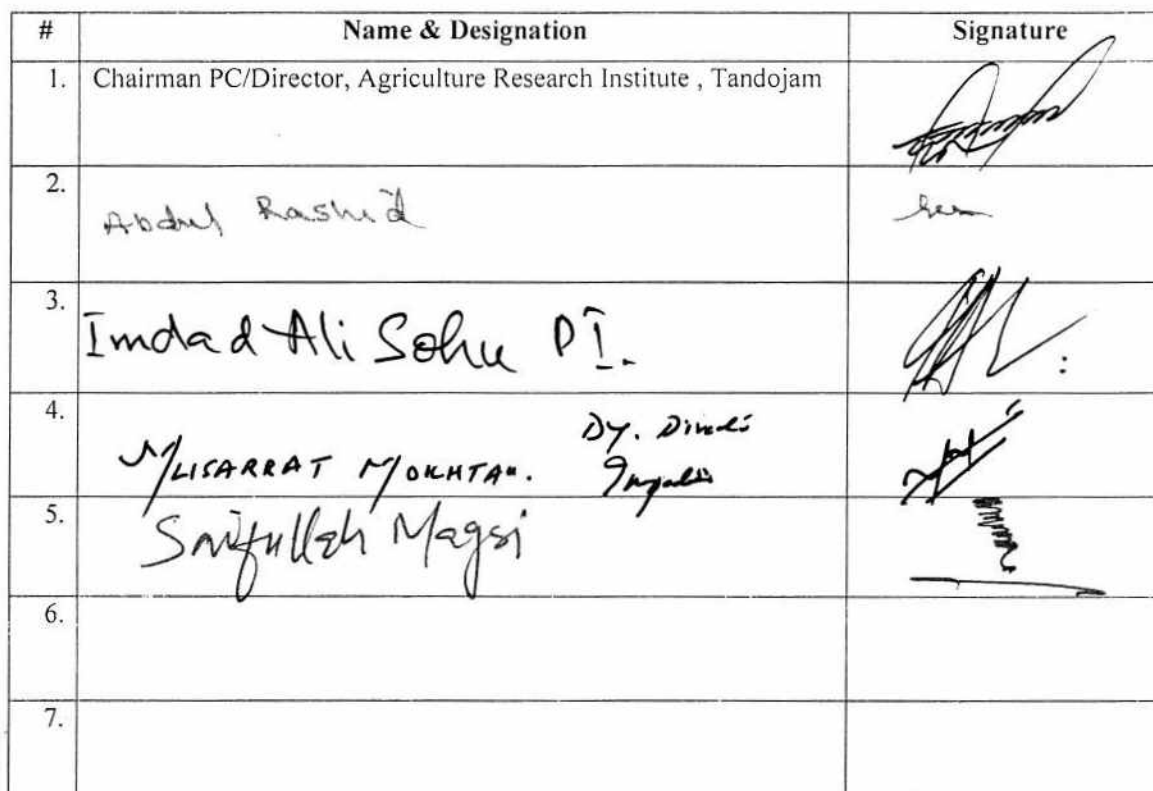 # Name & Designation Signature
1. Chairman PC/Director, Agriculture Research Institute , Tandojam
2. Abdul Rashid
3. Imdad Ali Sohu PI.
4. MUSARRAT MOKHTAR. Dy.
5. Saifullah Magsi
6.
7.